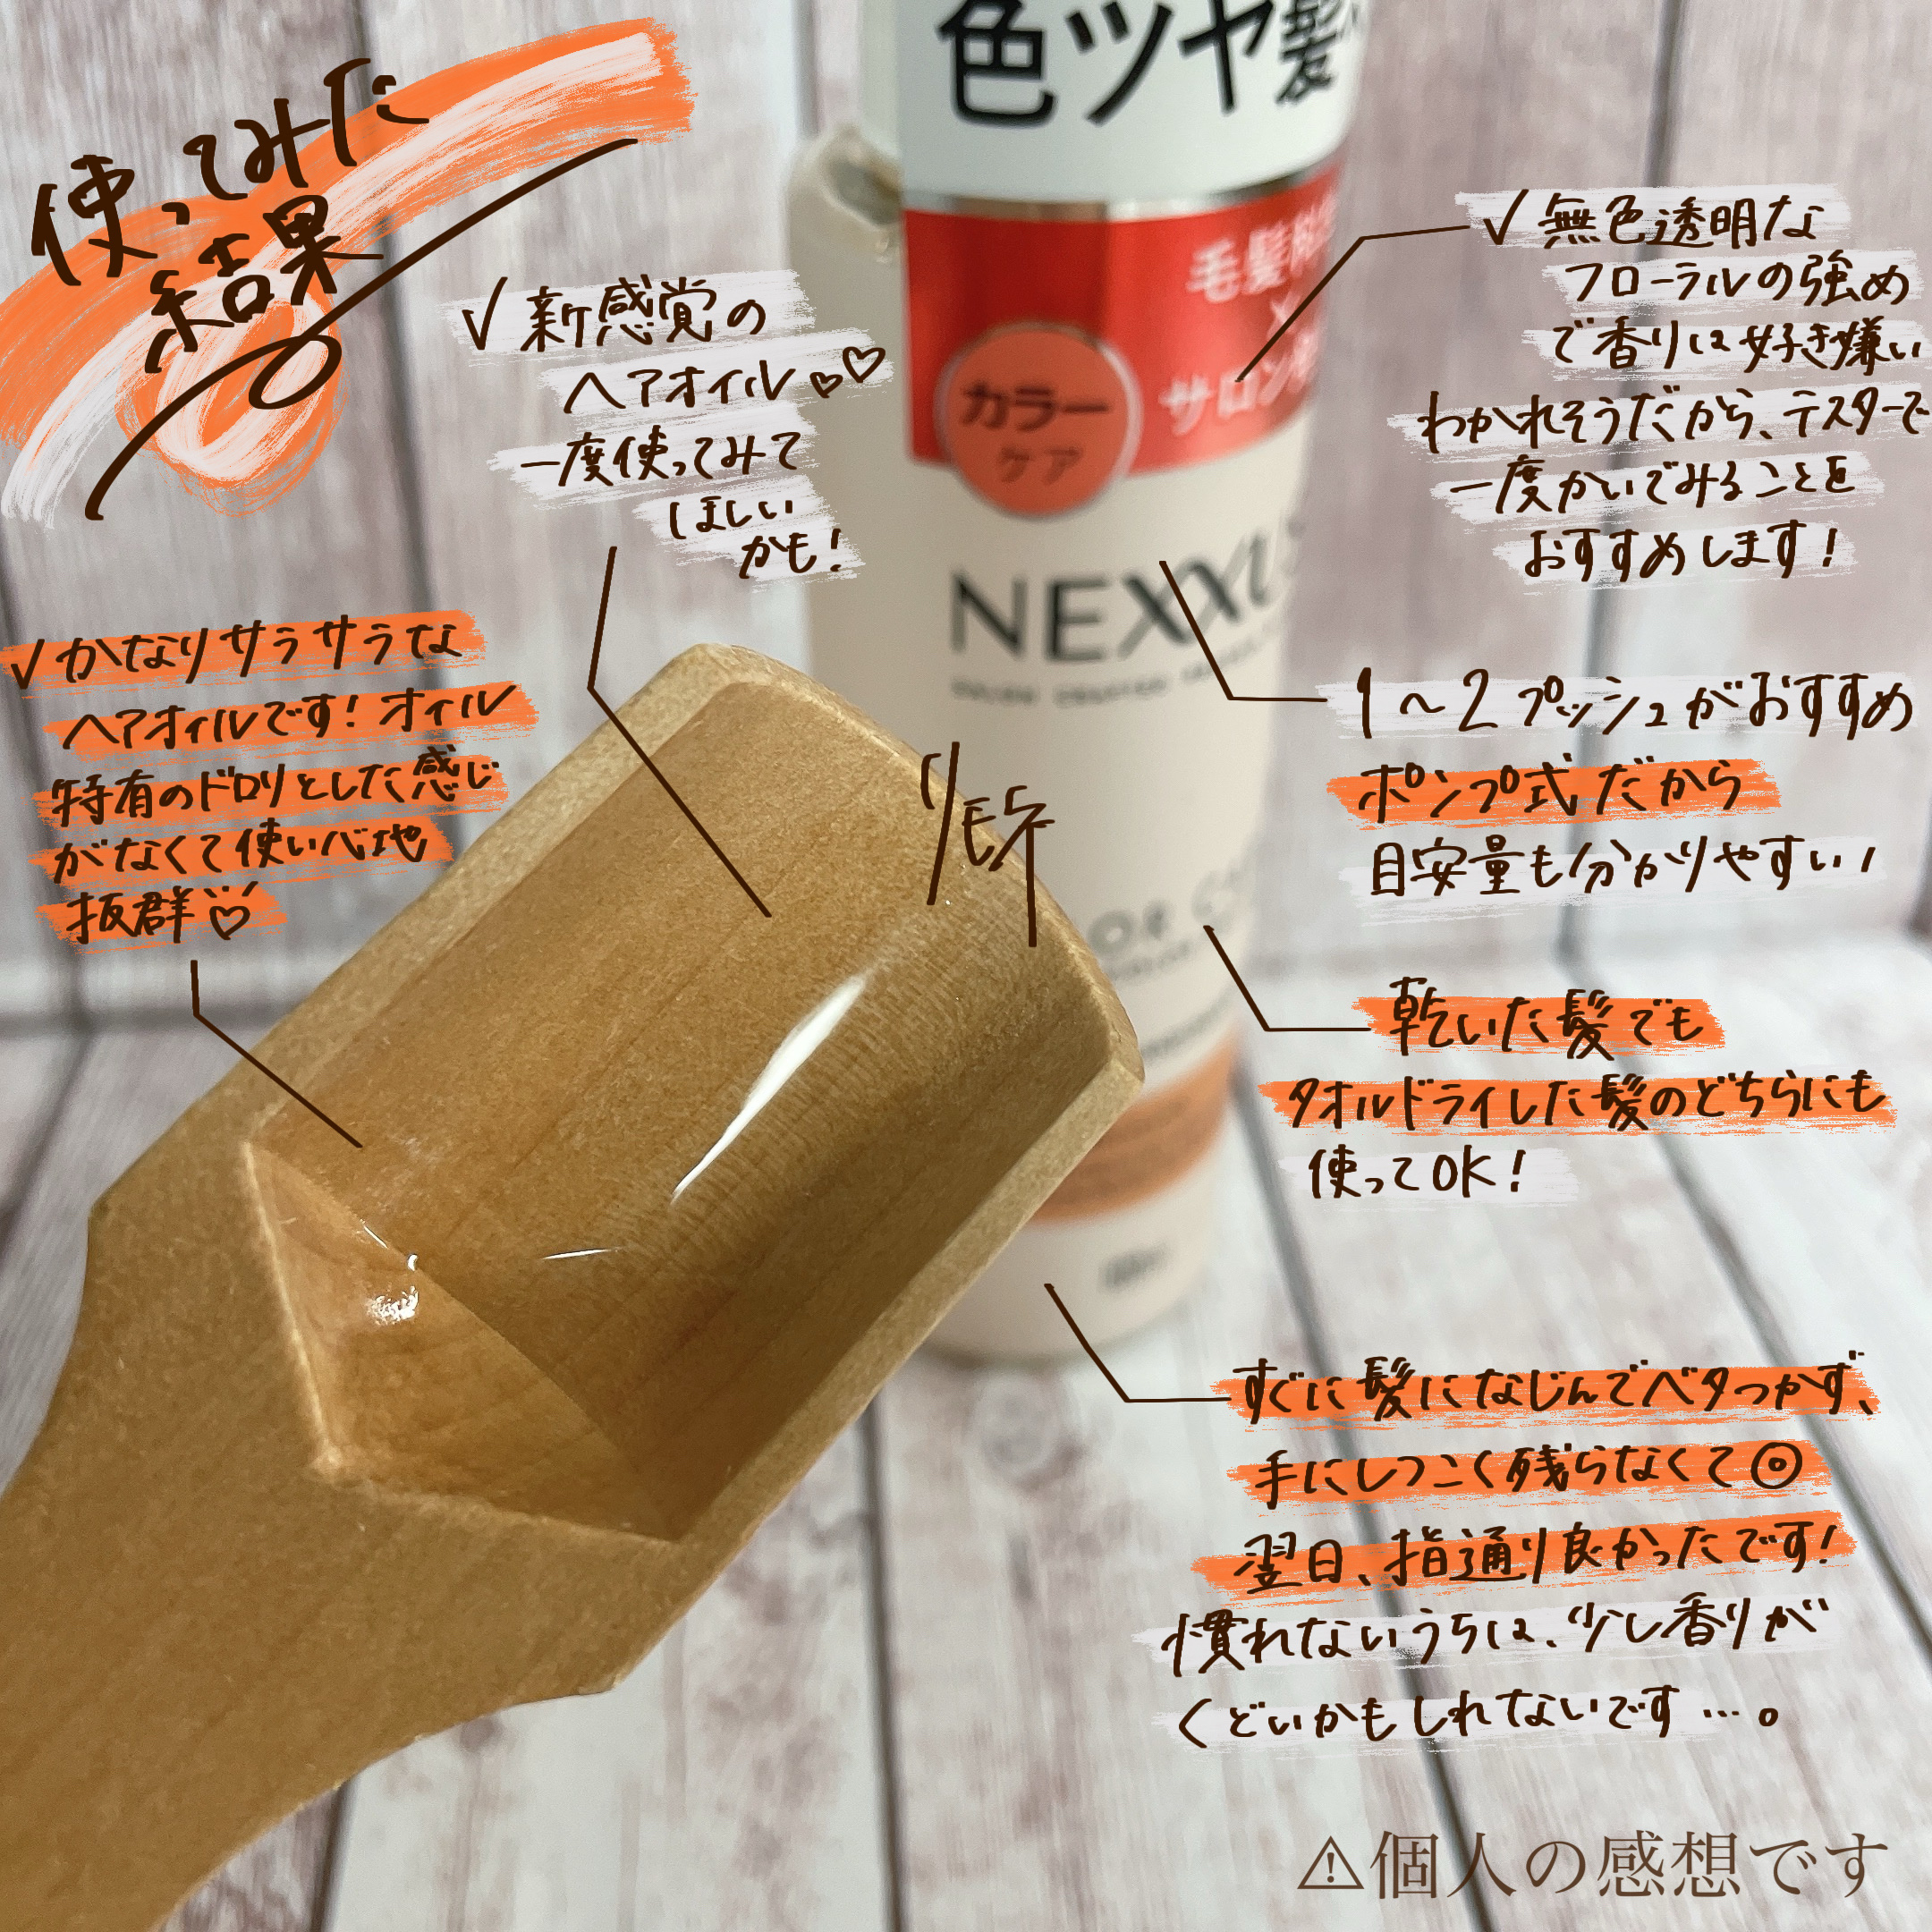 使ってみた
結果
✓新感覚の
ヘアオイル♡♡
一度使ってみて
ほしい
かも！
✓かなりサラサラな
ヘアオイルです！オイル
特有のドロリとした感じ
がなくて使い心地
抜群♡
色ツヤ髪
毛髪
サロン
カラー
ケア
NEXXUS
✓無色透明な
フローラルの強め
で香りは好き嫌い
わかれそうだから、テスターで
一度かいでみることを
おすすめします！
1〜2プッシュがおすすめ
ポンプ式だから
目安量も分かりやすい！
乾いた髪でも
タオルドライした髪のどちらにも
使ってOK！
すぐに髪になじんでベタつかず、
手にしつこく残らなくて◎
翌日、指通り良かったです！
慣れないうちは、少し香りが
くどいかもしれないです…。
⚠個人の感想です